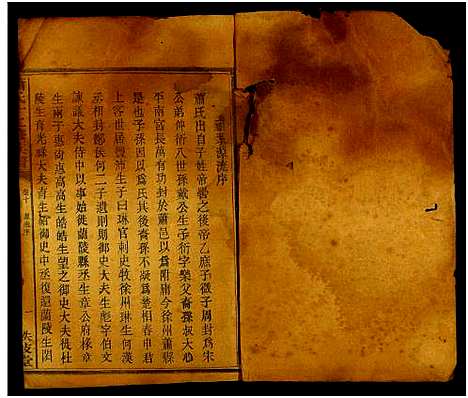 蕭氏源流序
蕭氏出自子姓帝嚳之後帝乙庶子微子周封為宋
公弟仲衍八世孫戴公生子衍字樂父裔孫叔大心
平南宮長萬有功封於蕭邑以為附庸今徐州蕭縣
是也子孫因以為氏其後裔孫不凝為楚相春申君
上客世居豐沛生子曰琳官刺史牧徐州琳生何漢
丞相封酇侯何二子遺則則御史大夫生彪字伯文
諫議大夫侍中以事始徙蘭陵縣丞生章公府椽章
生兩子惠尚惠高高生皓皓生望之御史大夫徙杜
陵生育光祿大夫育生紹御史中丞復還蘭陵生閎
一